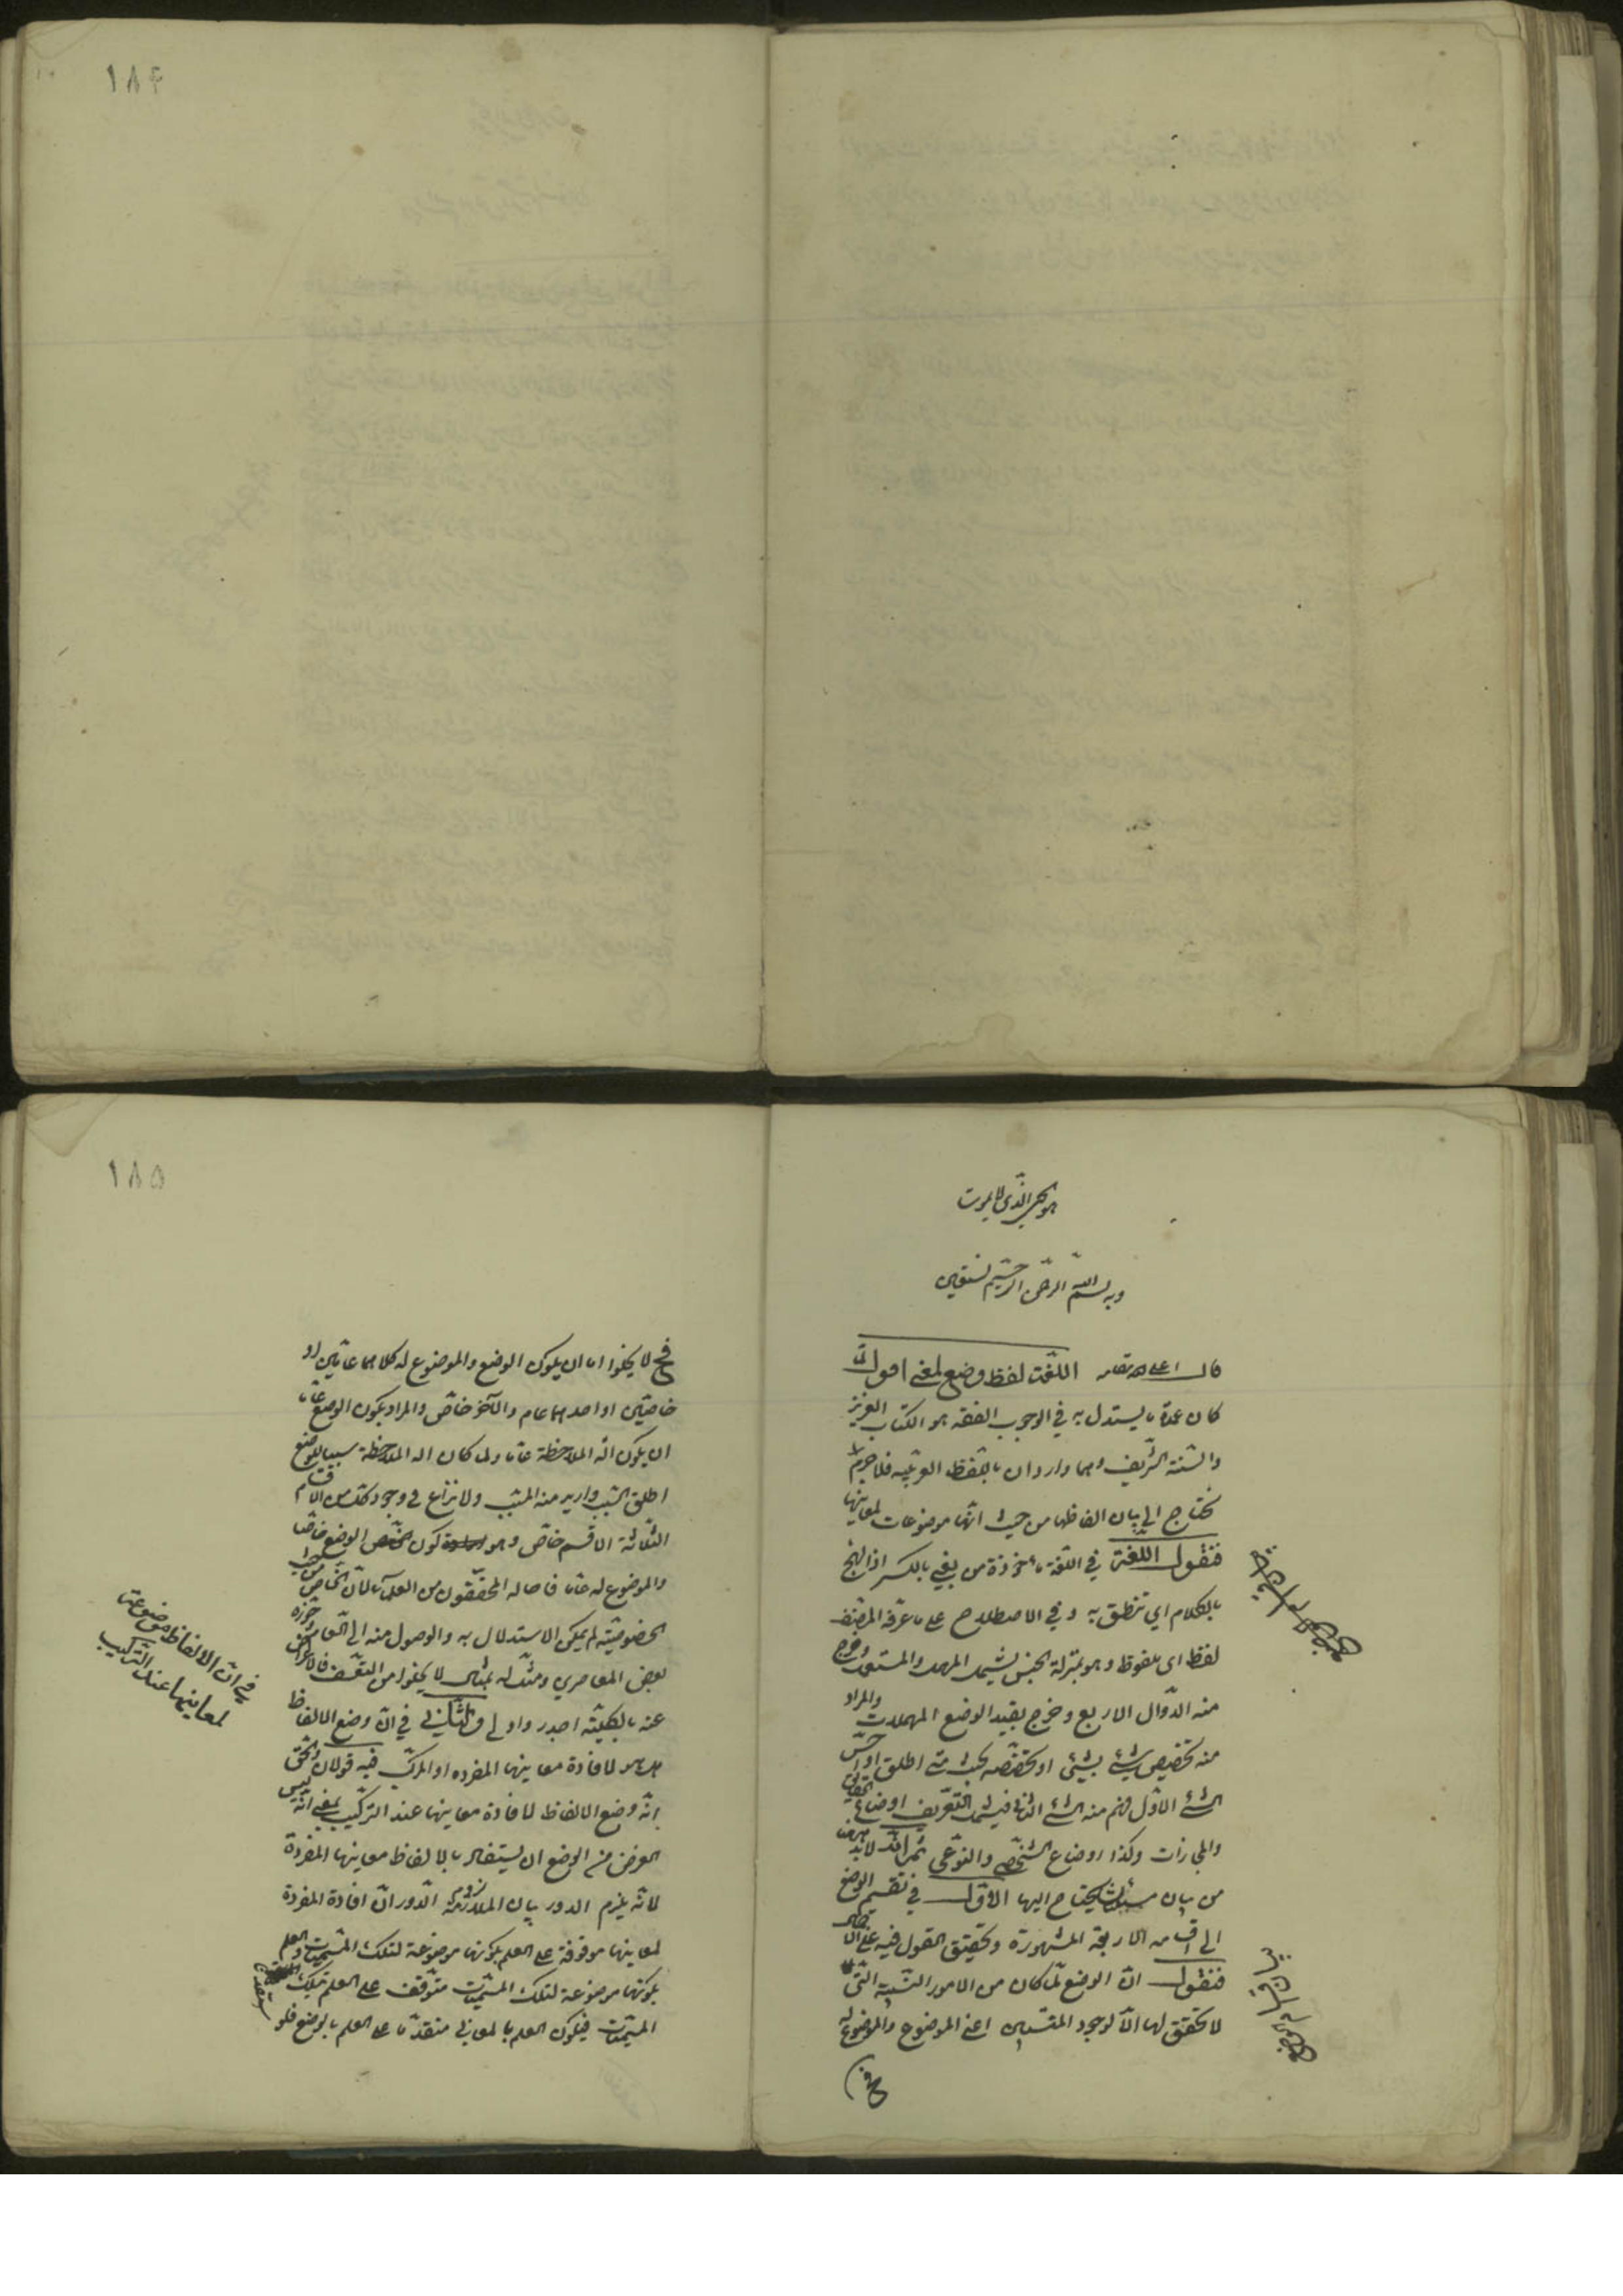 ١٨۴
هو الحي الذي لا يموت
وبه بسم الله الرحمن الرحيم نستعين
قال اعلى الله مقامه اللغت لفظ وضع لمعنى اقول لما
كان عمدة ما يستدل به في الوجوب الفقه هو الكتاب العزيز
والسنة الشريف وهما واردان باللفظ العربية فلا جرم
نحتاج الى بيان الفاظها من حيث انها موضوعات لمعاينها
فنقول اللغة في اللغة مأخوذة من يغي بالكسر اذا لهج
بالكلام اي تنطق به وفي الاصطلاح على ما عرفه المصنف
لفظ اى ملفوظ وهو بمنزلة الجنس يشمل المهمل والمستعمل وخرج
منه الدوال الاربع وخرج بقيد الوضع المهملات والمراد
منه تخصيص شئ بشئ او تخصصه بحيث متى اطلق او احس
الشئ الاول فهم منه الشئ الثاني فيشمل التعريف اوضاع الحقايق
والمجازات وكذا اوضاع الشخصي والنوعي ثم انه لابد
من بيان مسائل يحتاج اليها الاول في تقسيم الوضع
الى اقسامه الاربعة المشهورة وتحقيق القول فيه على الاجمال
فنقول ان الوضع لما كان من الامور النسبية التي
لا تحقق لها الا لوجود المنتسبين اعني الموضوع والموضوع له
فح
١٨۵
فح لا يخلوا اما ان يكون الوضع والموضوع له كلاهما عامين او
خاصين او احدهما عام والآخر خاص والمراد بكون الوضع عاما
ان يكون الة الملاحظة عاما ولما كان الة الملاحظة سببا للوضع
اطلق السبب واريد منه المسبب ولا نزاع في وجود كل من الاقسام
الثلاثة الا قسم خاص وهو كون الوضع خاصا
والموضوع له عاما فاحاله المحققون من العلماء لان الخاص من حيث
الخصوصية لم يمكن الاستدلال به والوصول منه الى العام وجوزه
بعض المعاصرين ومثل له بمثال لا يخلوا من التعسف فالاعراض
عنه بالكلية اجدر واولى والثاني في ان وضع الالفاظ
هل هو لافادة معاينها المفرده او المركب فيه قولان والحق
انه وضع الالفاظ لافادة معاينها عند التركيب بمعنى انه ليس
الغرض من الوضع ان يستفاد بالالفاظ معاينها المفردة
لانه يلزم الدور بيان الملازمة لزوم الدور ان افادة المفردة
لمعاينها موقوفة على العلم بكونها موضوعة لتلك المسميات والعلم
بكونها موضوعة لتلك المسميات متوقف على العلم بتلك
المسميات فيكون العلم بالمعاني متقدما على العلم بالوضع فلو
في ان الالفاظ موضوعة
لمعاينها عند التركيب